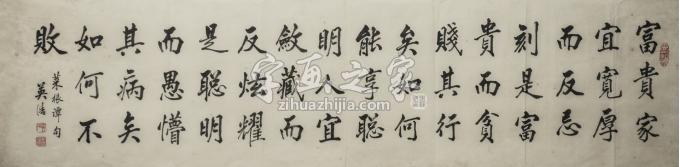 富貴家
宜寬厚
而反忌
刻是富
貴而貧
賤其行
矣如何
能享聰
明人宜
斂藏而
反炫耀
是聰明
而愚懵
其病矣
如何不
敗
菜根譚句
字画之家
zihuazhijia.com